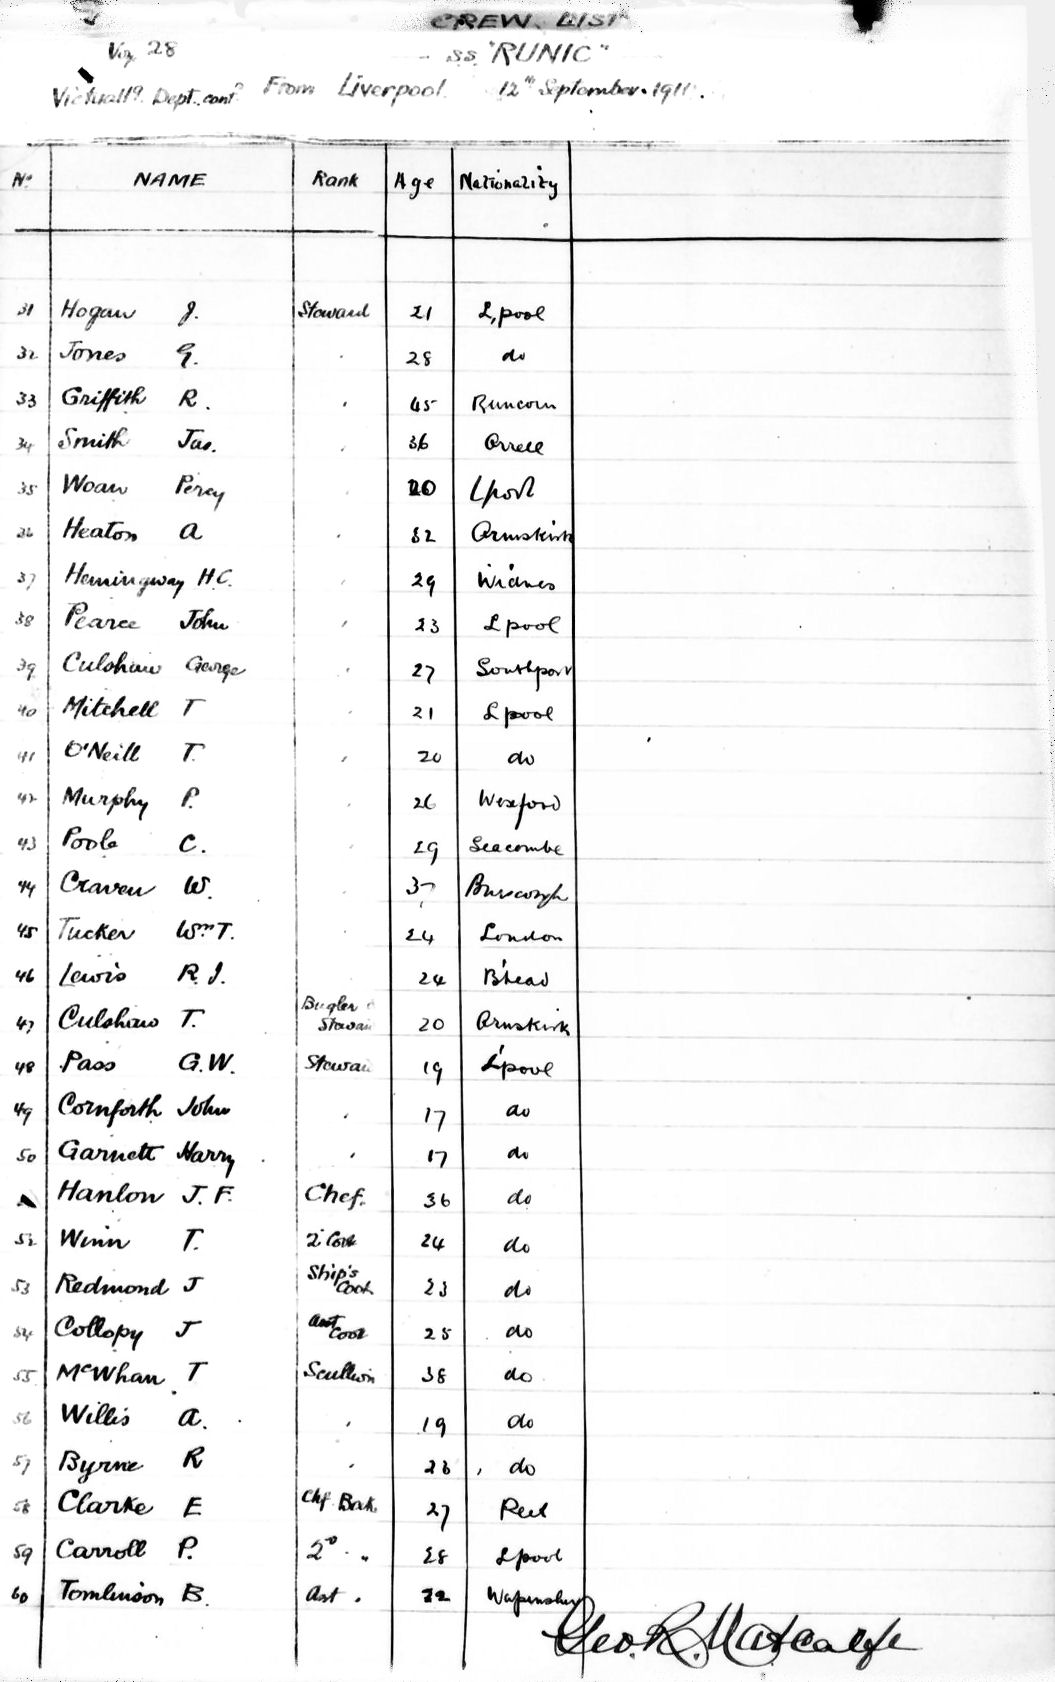 CREW LIST
Voy 28 S.S. "RUNIC"
Victuallg. Dept. contd From Liverpool 12th September 1911.
No. NAME Rank Age Nationality
31 Hogan J. Steward 21 L'pool
32 Jones G. " 28 do
33 Griffith R. " 45 Runcorn
34 Smith Jas. " 36 Orrell
35 Woan Percy " 20 Lpool
36 Heaton A " 32 Ormskirk
37 Hemingway H.C. " 29 Widnes
38 Pearce John " 23 Lpool
39 Culshaw George " 27 Southport
40 Mitchell T " 21 Lpool
41 O'Neill T. " 20 do
42 Murphy P. " 26 Wexford
43 Poole C. " 29 Seacombe
44 Craven W. " 37 Burscough
45 Tucker Wm T. " 24 London
46 Lewis R. J. 24 B'head
47 Culshaw T. Bugler & Stewar 20 Ormskirk
48 Pass G.W. Stewar 19 L'pool
49 Cornforth John " 17 do
50 Garnett Harry " 17 do
Hanlon J. F. Chef. 36 do
52 Winn T. 2d Cook 24 do
53 Redmond J Ship's Cook 23 do
54 Collopy J Asst Cook 25 do
55 McWhan T Scullion 38 do
56 Willis A. " 19 do
57 Byrne R " 23 do
58 Clarke E Chf. Bak 27 Peel
59 Carroll P. 2d " " 28 Lpool
60 Tomlinson B. Asst " 22
Geo. R. Metcalfe